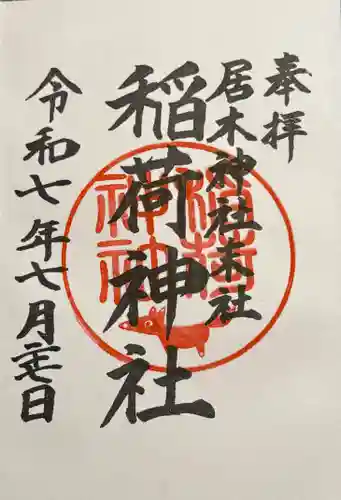 奉拝
居木神社末社
稲荷神社
令和七年七月二十七日
稲荷
神社